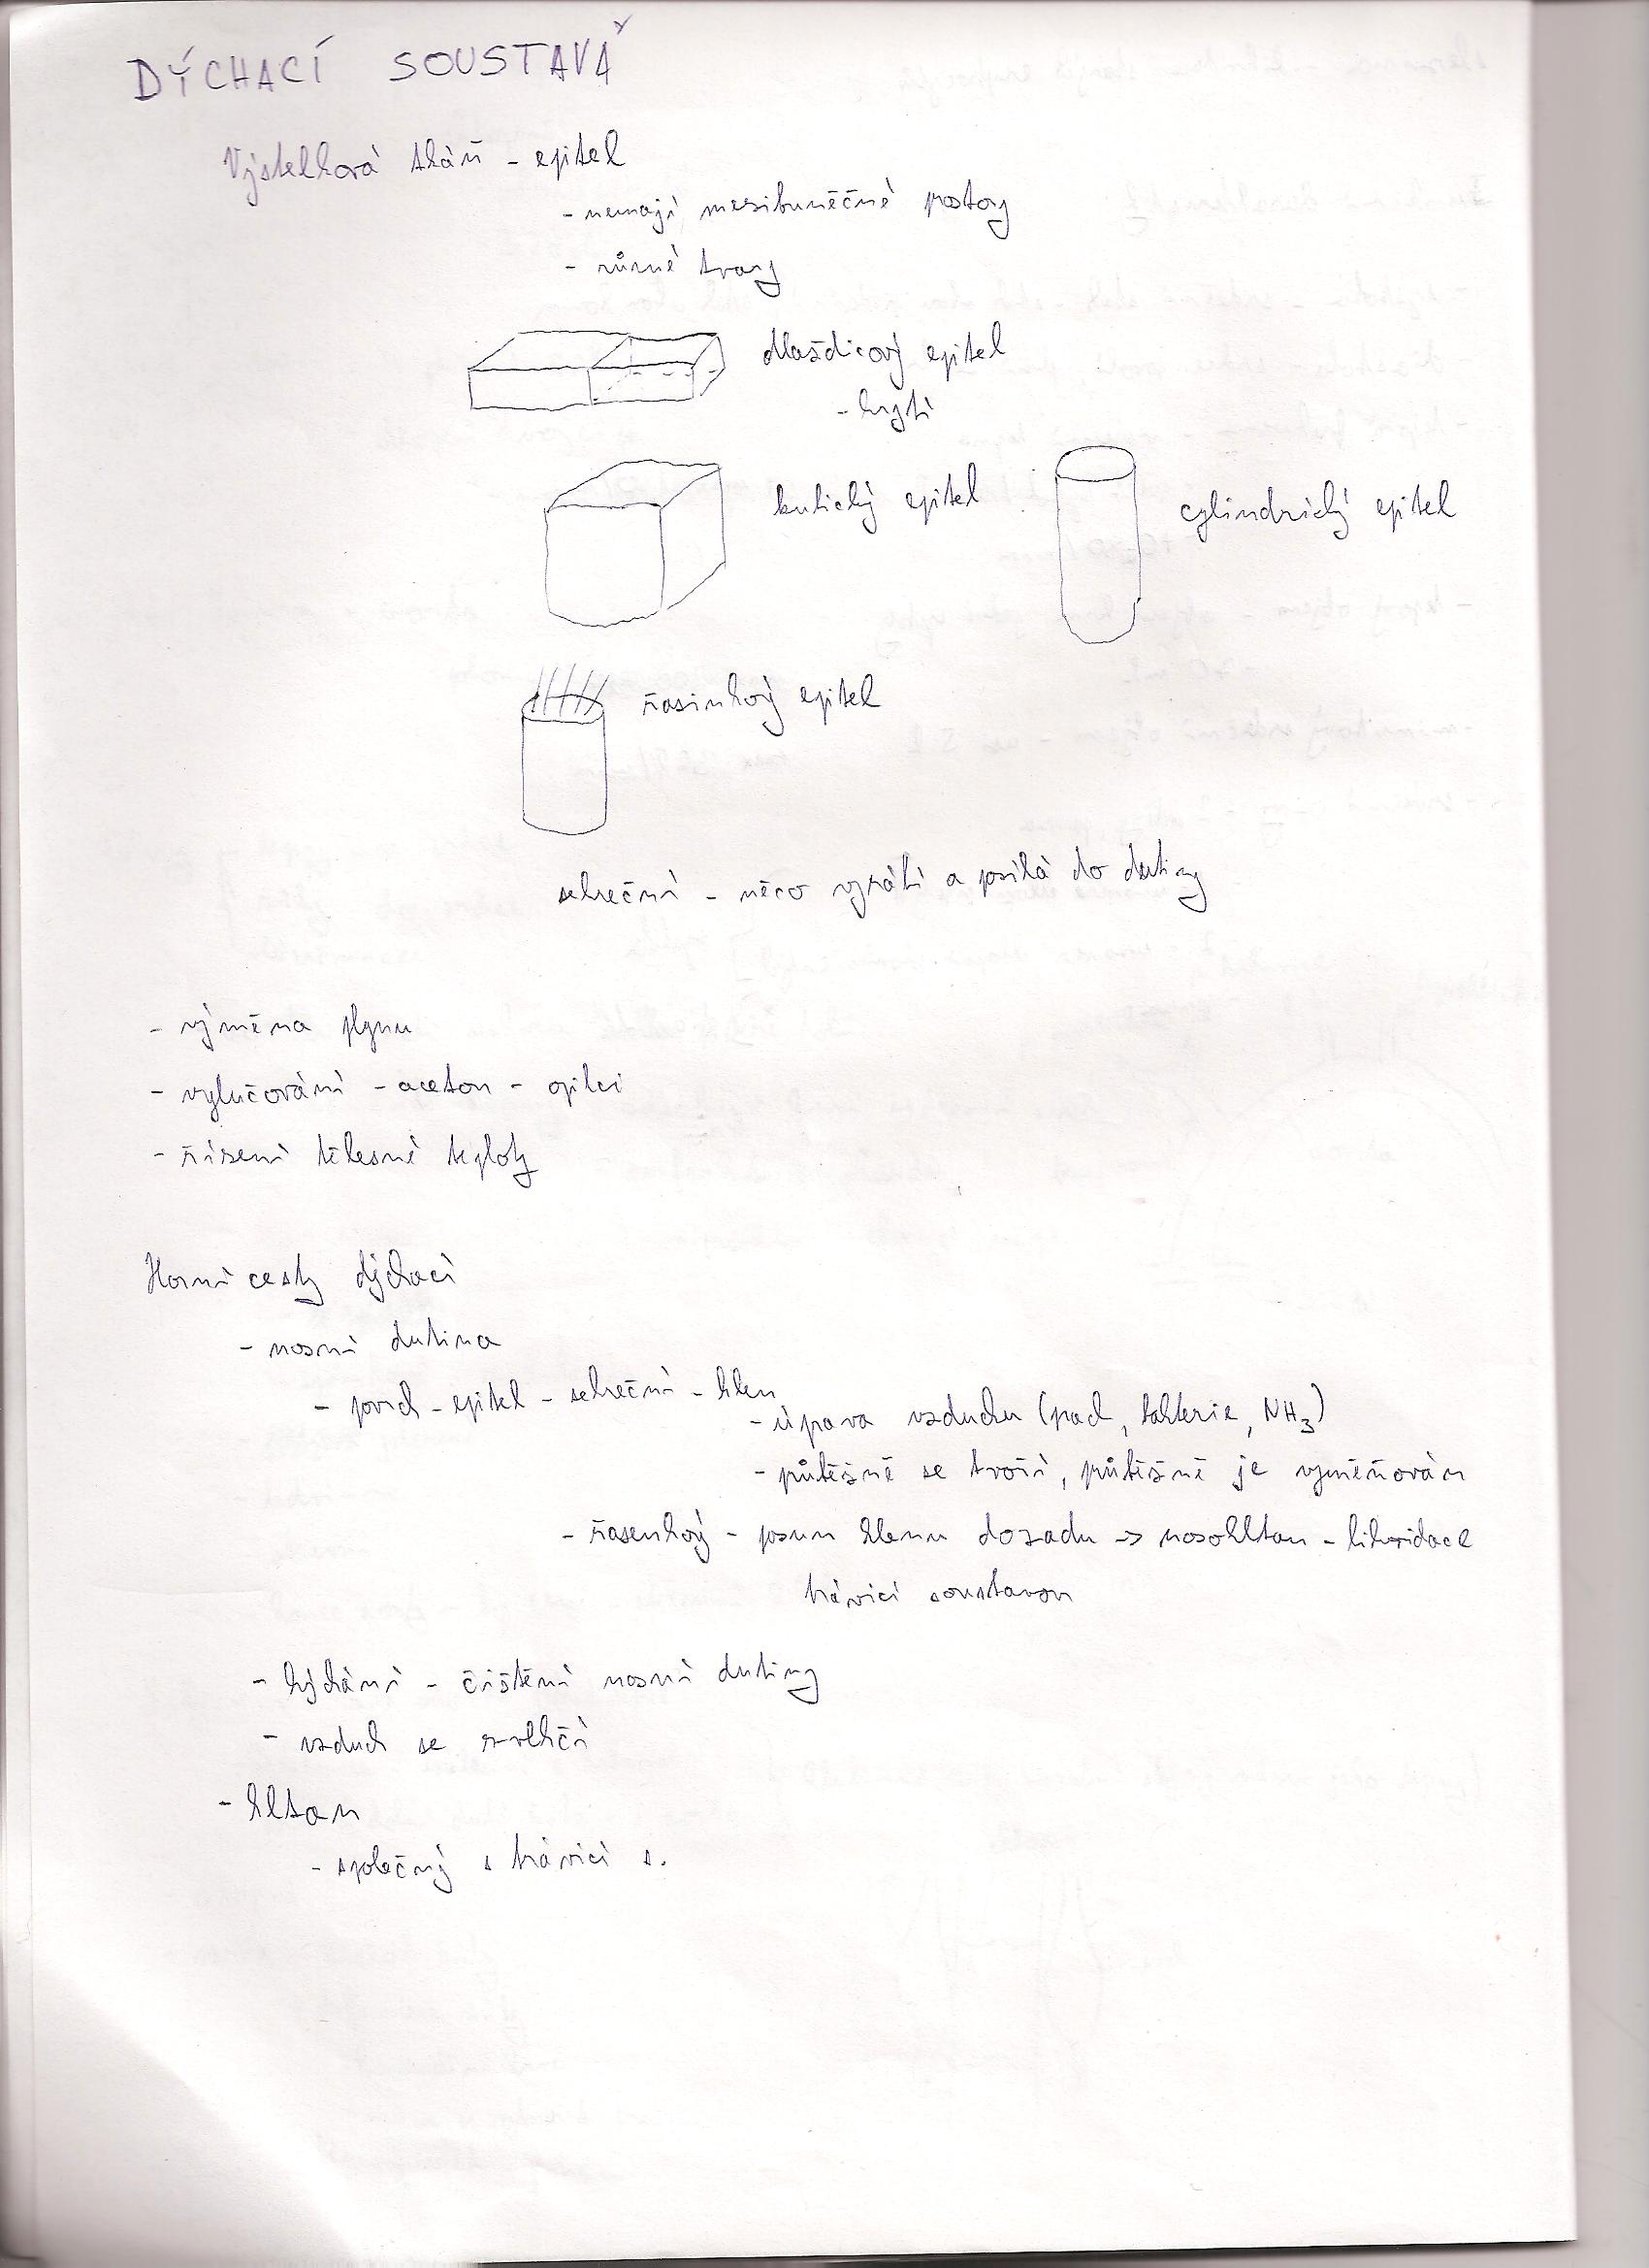 DÝCHACÍ SOUSTAVA
Výstelková tkáň - epitel
- nemají mezibuněčné postory
- různé tvary
dlaždicový epitel
- krytí
kubický epitel
cylindrický epitel
řasinkový epitel
sekreční - něco vyrábí a posílá do dutiny
- výměna plynu
- vylučování - aceton - opilci
- řízení tělesné teploty
Horní cesty dýchací
- nosní dutina
- povrch - epitel - sekreční - hlen
- úprava vzduchu (prach, bakterie, NH3)
- průběžně se tvoří, průběžně je vyměňován
- řasenkový - posun hlenu dozadu -> nosohltan - likvidace
trávící soustavou
- kýchání - čištění nosní dutiny
- vzduch se zvlhčí
- hltan
- společný s trávicí s.